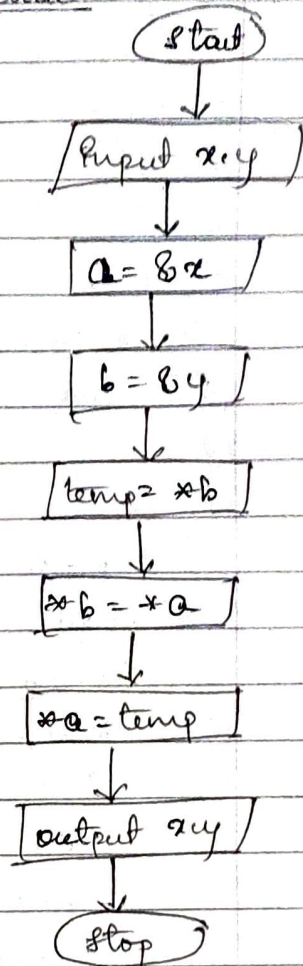 start
Input x,y
a = &x
b = &y
temp = *b
*b = *a
*a = temp
output x,y
stop